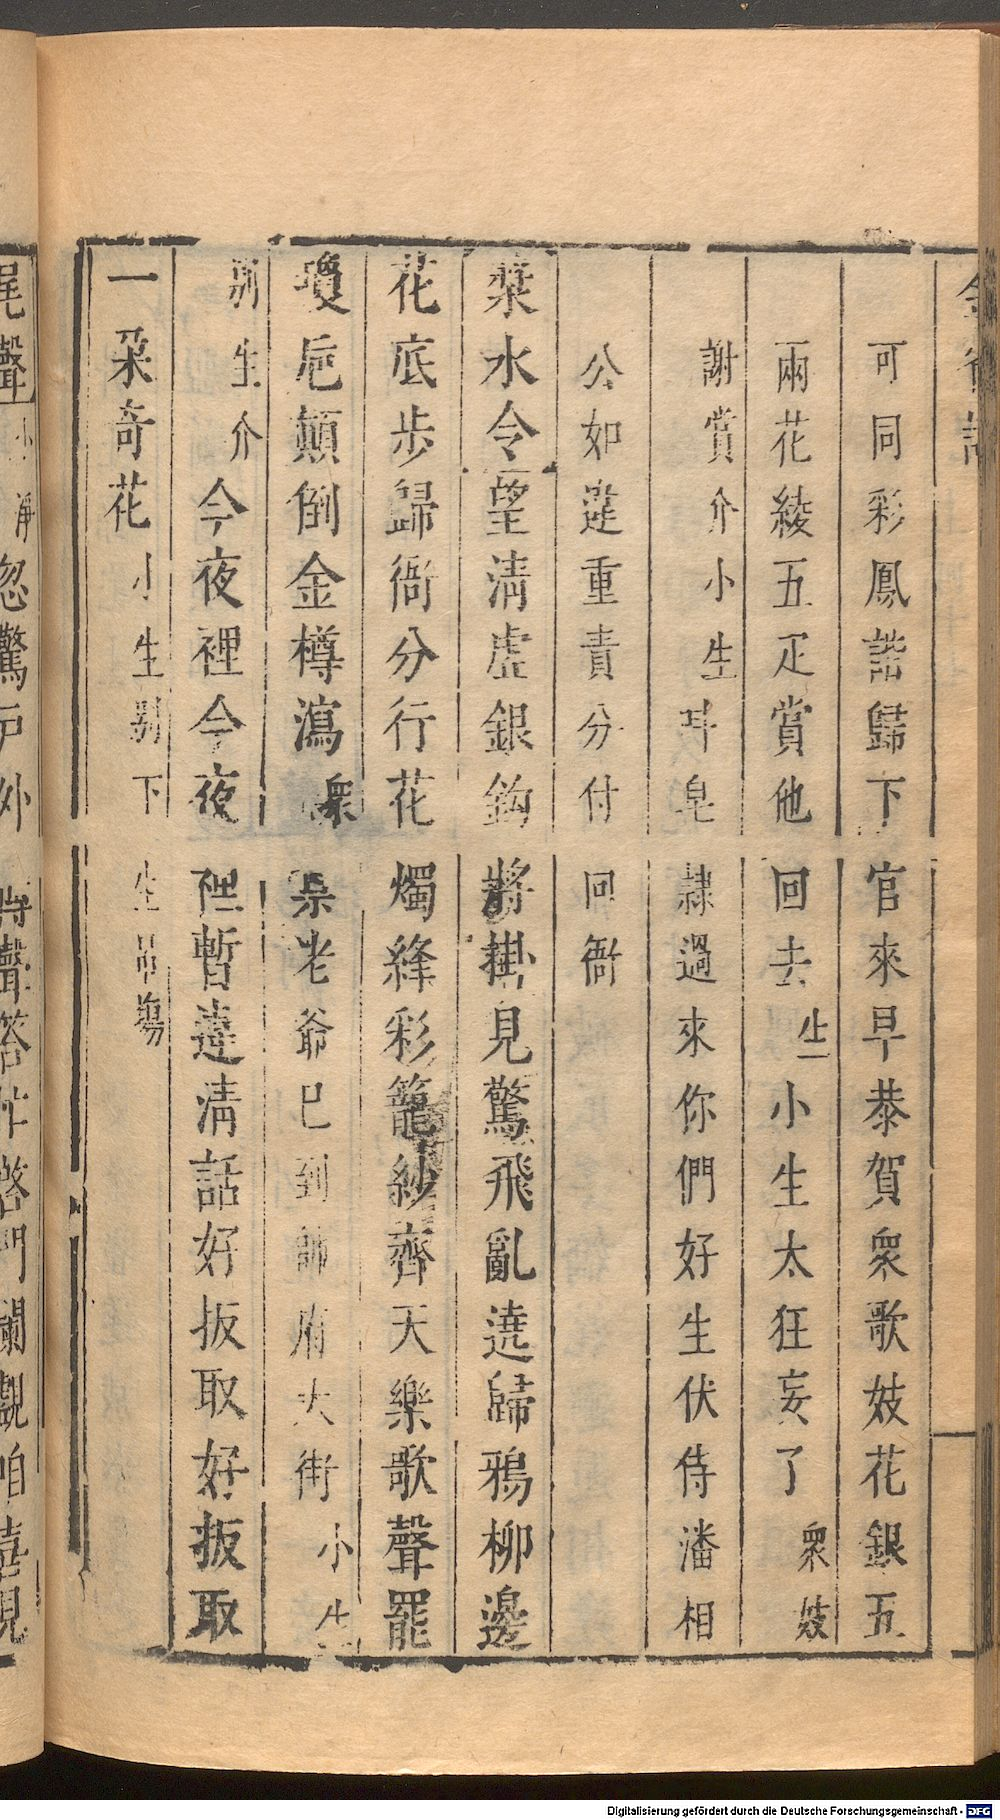 可同彩鳳諧歸下官來早恭賀衆歌妓花銀五
兩花綾五疋賞他回去生小生太狂妄了衆妓
謝賞介小生呌皂隷過來你們好生伏侍潘相
公如違重責分付回衙
棻水令望清虛銀鈎將掛見驚飛亂遶歸鴉柳邊
花底步歸衙分行花燭絳彩籠紗齊天樂歌聲罷
瓊卮顛倒金樽瀉衆禀老爺已到帥府大街小生
別生介今夜裡今夜裡暫違清話好扳取好扳取
一朶奇花小生別下生吊塲
Digitalisierung gefördert durch die Deutsche Forschungsgemeinschaft - DFG